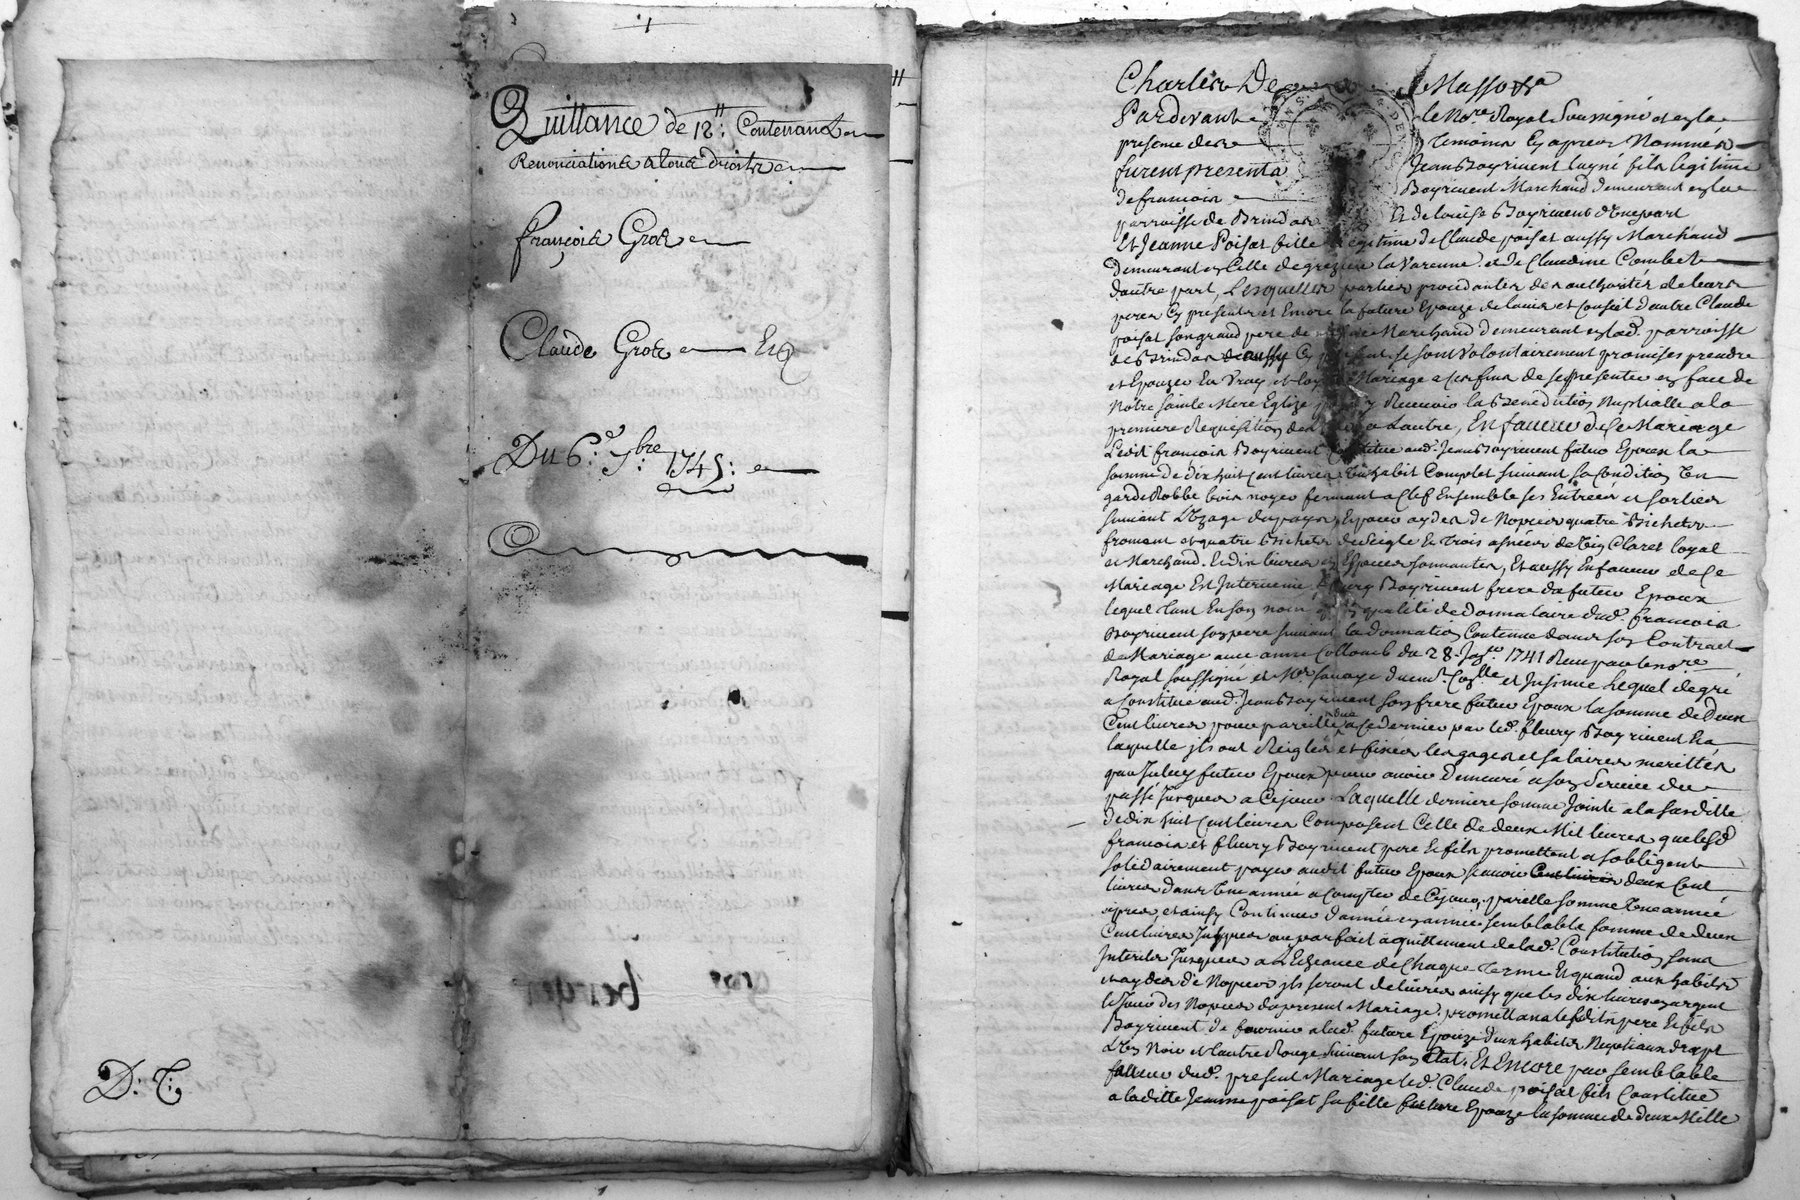 Quittance de 18ᴸᴸ: Contenant
Renonciations a tous droits
françois Gros
Claude Gros
Du 6.ᵉ 7.bre 1745:
D: T:
gros berger
Charles De Masso &ᵃ
Pardevant le Nore Royal Soussigné et en la
presence des temoins Cy apres Nommés
furent presents Jean Boyriuent layné fils legitime
de francois Boyriuent Marchand demeurant en la
parroisse de Brindas Et de louise Boyriuent d'Une part
Et Jeanne Poisat fille legitime de Claude poisat aussy Marchand
demeurant en Celle de grezieu la Varenne et de Claudine Combet
dautre part, Lesquelles parties procedantes des authorités de leurs
peres Cy presents et Encore la future Epouze de lauis et Conseil d'autre Claude
poisat son grand pere Marchand demeurant en lad. parroisse
de Brindas aussy Cy present, se sont volontairement promises prendre
et Epouzer En Vray et loyal Mariage a Ces fins de se presenter en face de
Notre Sainte Mere Eglise y Receuoir la Benediction Nuptialle a la
premiere Requisition de a Lautre, En faueur de Ce Mariage
Ledit francois Boyriuent Constitue aud. Jean Boyriuent futur Epoux la
somme de dix huit Cent liures Un habit Complet suiuant sa Condition Un
garderobbe bois noyer fermant a Clef Ensemble ses Entrées et sorties
suiuant L'Uzage du pays, Et pour aydes de Nopces quatre Bichets
froment et quatre Bichets de seigle Et trois asnées de Vin Claret loyal
et Marchand. Et dix liures en Especes sonnantes, Et aussy En faueur de Ce
Mariage Est Interuenu fleury Boyriuent frere du futur Epoux
lequel tant En son nom qu'en qualité de donnataire dud. francois
Boyriuent son pere suiuant la donnation Contenue dans son Contract
de Mariage auec anne Collomb du 28. 1741 Receu par le nore
Royal soussigné et Me Sauoye Insinué Lequel de gré
a Constitué aud. Jean Boyriuent son frere futur Epoux la somme de Deux
Cent liures pour pareille due a Ce dernier par led. fleury Boyriuent Et a
laquelle jls ont Reiglés et fixés les gages et salaires merittés
par Iceluy futur Epoux pour auoir Demeuré a son Seruice du
passé Jusques a Ce jour. Laquelle derniere somme Jointe a la susditte
de dix huit Cent liures Composent Celle de deux Mil liures que lesd.
francois et fleury Boyriuent pere et fils promettent et s'obligent
solidairement payer audit futur Epoux scauoir deux Cent
liures dans Une année a Compter de Ce jour, pareille somme Une année
apres, et ainsy Continuer d'année en année semblable somme de deux
Cent liures Jusques au parfait aquittement de lad. Constitution sans
Interets Jusques a L'Echeance de Chaque terme Et quand aux habits
et aydes de Nopces jls seront deliurés ainsy que les dix liures en argent
le Jour des Nopces du present Mariage. promettans lesdits pere et fils
Boyriuent de fournir a lad. future Epouze deux habits Nuptiaux drapt
L'Un Noir et lautre Rouge Suiuant son Etat. Et Encore par semblable
faueur dud. present Mariage led. Claude poisat fils Constitue
a laditte Jeanne poisat sa fille future Epouze la somme de deux Mille